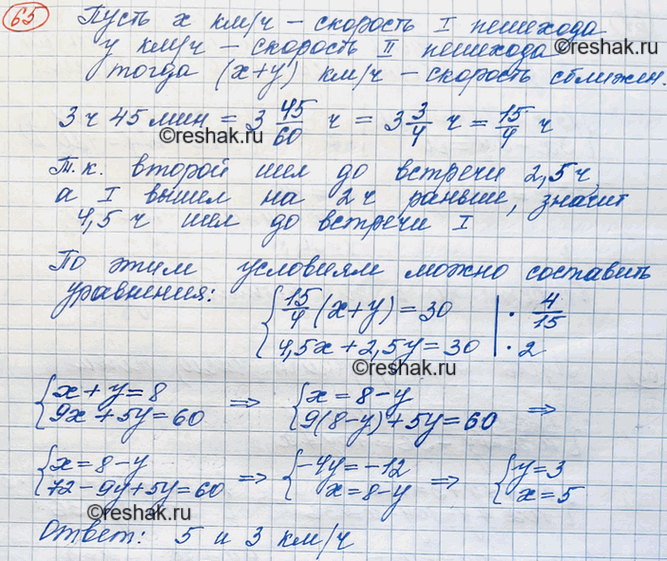 65 Пусть x км/ч – скорость I пешехода
y км/ч – скорость II пешехода
©reshak.ru
тогда (x+y) км/ч – скорость сближен.
3 ч 45 мин = 3 45/60 ч = 3 3/4 ч = 15/4 ч
©reshak.ru
Т.к. второй шел до встречи 2,5 ч,
а I вышел на 2 ч раньше, значит
4,5 ч шел до встречи I
©reshak.ru
По этим условиям можно составить
уравнения: { 15/4 (x+y) = 30 | · 4/15
4,5x + 2,5y = 30 | · 2
{ x + y = 8 ⇒ { x = 8 – y
9x + 5y = 60 9(8–y) + 5y = 60 ⇒
©reshak.ru
{ x = 8 – y ⇒ { –4y = –12 ⇒ { y = 3
72 – 9y + 5y = 60 x = 8 – y x = 5
©reshak.ru
Ответ: 5 и 3 км/ч